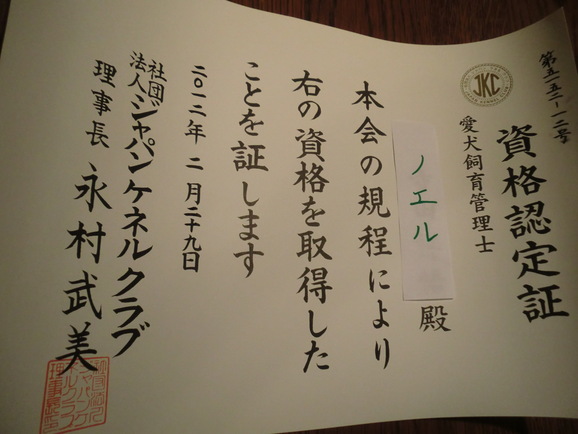 第五一五二一一二号
資格認定証
JKC
愛犬飼育管理士
ノエル 殿
本会の規程により
右の資格を取得した
ことを証します
二〇一二年二月二十九日
社団法人ジャパンケネルクラブ
理事長 永村武美